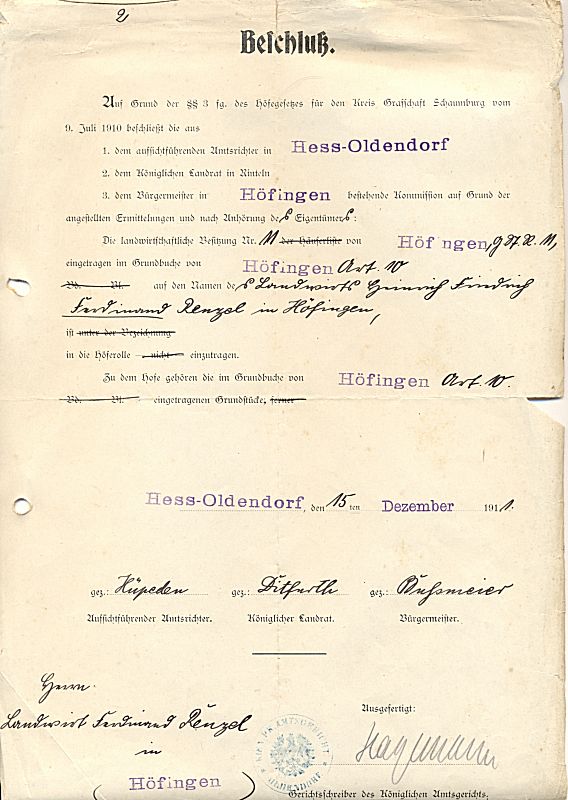 2
Beschluß.
Auf Grund der §§ 3 fg. des Höfegesetzes für den Kreis Grafschaft Schaumburg vom
9. Juli 1910 beschließt die aus
1. dem aufsichtführenden Amtsrichter in Hess-Oldendorf
2. dem Königlichen Landrat in Rinteln
3. dem Bürgermeister in Höfingen bestehende Kommission auf Grund der
angestellten Ermittelungen und nach Anhörung des Eigentümers:
Die landwirtschaftliche Besitzung Nr. 11 der Häuserliste von Höfingen, g. St. R. 11,
eingetragen im Grundbuche von Höfingen Art. 10
Bd. Bl. auf den Namen des Landwirts Heinrich Friedrich
Ferdinand Renzel in Höfingen,
ist unter der Bezeichnung
in die Höferolle nicht einzutragen.
Zu dem Hofe gehören die im Grundbuche von Höfingen Art. 10.
Bd. Bl. eingetragenen Grundstücke, ferner
Hess-Oldendorf, den 15ten Dezember 1911.
gez.: Hüpeden gez.: Ditfurth gez.: Bußmeier
Aufsichtführender Amtsrichter. Königlicher Landrat. Bürgermeister.
Herrn
Landwirt Ferdinand Renzel
in
Höfingen
Ausgefertigt:
Hagemann
Gerichtsschreiber des Königlichen Amtsgerichts.
AMTSGERICHT
OLDENDORF